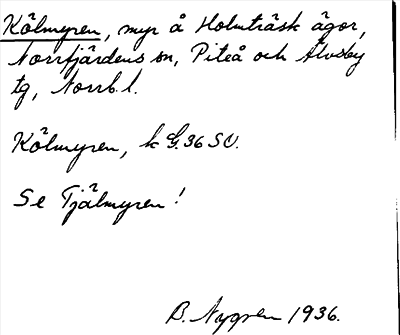 Kälmyren, myr å Holmträsk ägor,
Norrfjärdens sn, Piteå och Älvsby
tg, Norrb. l.
Kälmyren, k G. 36 SV.
Se Tjälmyren!
B. Nygren 1936.